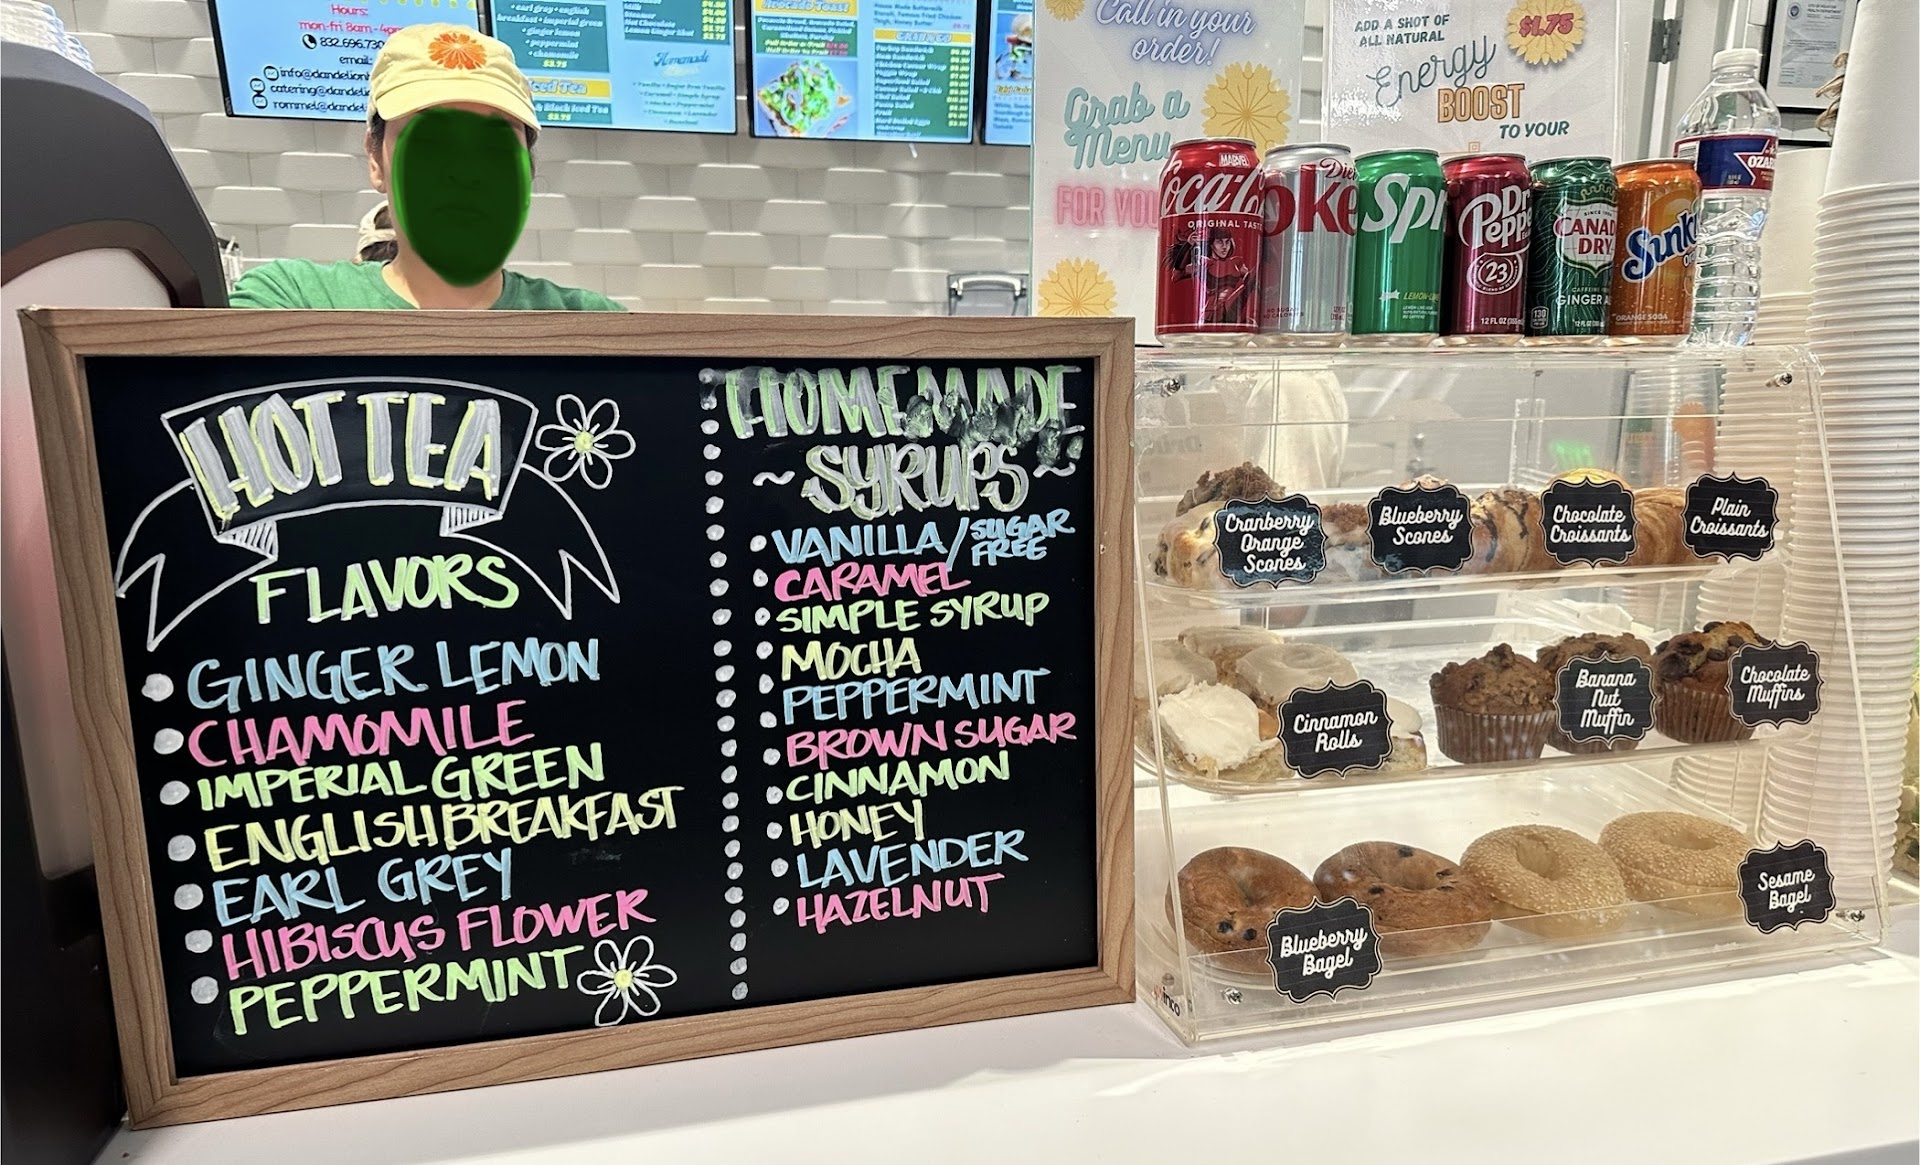 Hours:
mon-fri 8am-4pm
832.696.730
email:
info@dandelion
catering@dandeli
rommel@dandel
• earl grey • english
breakfast • imperial green
• ginger lemon
• peppermint
• chamomile
$3.75
Iced Tea
& Black Iced Tea
$3.75
Hot Chocolate
Lemon Ginger Shot
Homemade
Avocado Toast
Call in your
order!
Grab a
Menu
FOR YOU
ADD A SHOT OF
ALL NATURAL
$1.75
Energy
BOOST
TO YOUR
MARVEL
Coca-Co
ORIGINAL TAST
Diet
oke
Spr
LEMON-LI
Dr
Peppe
23
12 FL OZ (355
SINCE 1904
CANAD
DRY
CAFFEINE
GINGER A
130
12 FL OZ (35
Sunki
ORANGE SODA
OZAR
HOT TEA
FLAVORS
GINGER LEMON
CHAMOMILE
IMPERIAL GREEN
ENGLISH BREAKFAST
EARL GREY
HIBISCUS FLOWER
PEPPERMINT
HOMEMADE
~SYRUPS~
VANILLA/SUGAR FREE
CARAMEL
SIMPLE SYRUP
MOCHA
PEPPERMINT
BROWN SUGAR
CINNAMON
HONEY
LAVENDER
HAZELNUT
Cranberry
Orange
Scones
Blueberry
Scones
Chocolate
Croissants
Plain
Croissants
Cinnamon
Rolls
Banana
Nut
Muffin
Chocolate
Muffins
Blueberry
Bagel
Sesame
Bagel